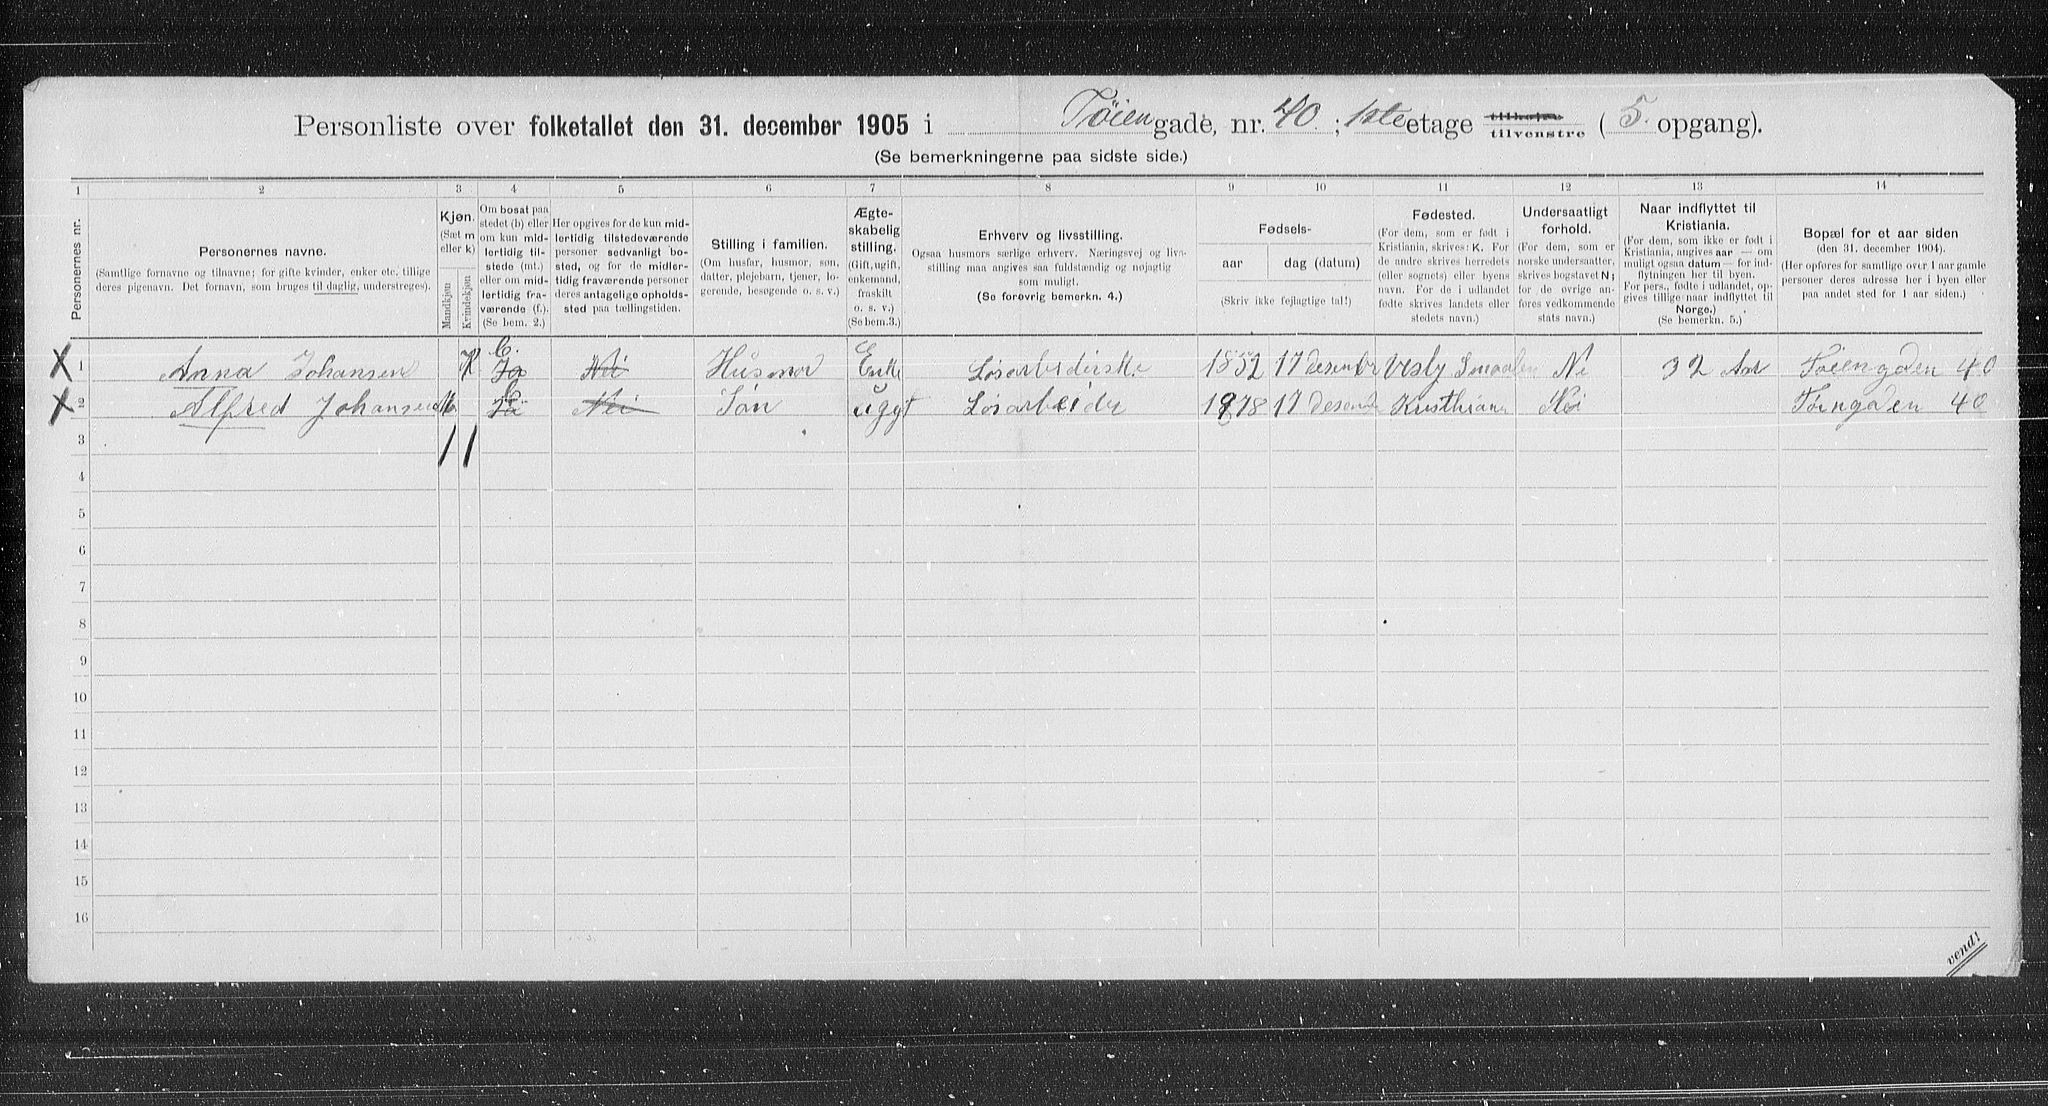 Personliste over folketallet den 31. december 1905 i Tøiengade, nr. 40 ; 1ste etage tilhøire tilvenstre ( 5. opgang).
(Se bemerkningerne paa sidste side.)
1 2 3 4 5 6 7 8 9 10 11 12 13 14
Personernes nr.
Personernes navne.
(Samtlige fornavne og tilnavne; for gifte kvinder, enker etc. tillige
deres pigenavn. Det fornavn, som bruges til daglig, understreges).
Kjøn.
(Sæt m
eller k)
Mandkjøn
Kvindekjøn
Om bosat paa
stedet (b) eller
om kun mid-
lertidig til-
stede (mt.)
eller om mid-
lertidig fra-
værende (f.).
(Se bem. 2.)
Her opgives for de kun mid-
lertidig tilstedeværende
personer sedvanligt bo-
sted, og for de midler-
tidig fraværende personer
deres antagelige opholds-
sted paa tællingstiden.
Stilling i familien.
(Om husfar, husmor, søn,
datter, plejebarn, tjener, lo-
gerende, besøgende o. s. v.)
Ægte-
skabelig
stilling.
(Gift, ugift,
enkemand,
fraskilt
o. s. v.)
(Se bem.3.)
Erhverv og livsstilling.
Ogsaa husmors særlige erhverv. Næringsvej og livs-
stilling maa angives saa fuldstændig og nøjagtig
som muligt.
(Se forøvrig bemerkn. 4.)
Fødsels-
aar
dag (datum)
(Skriv ikke fejlagtige tal!)
Fødested.
(For dem, som er født i
Kristiania, skrives: K. For
de andre skrives herredets
(eller sognets) eller byens
navn. For de i udlandet
fødte skrives landets eller
stedets navn.)
Undersaatligt
forhold.
(For dem, som er
norske undersaatter,
skrives bogstavet N;
for de øvrige an-
føres vedkommende
stats navn.)
Naar indflyttet til
Kristiania.
(For dem, som ikke er født i
Kristiania, angives aar — om
muligt ogsaa datum — for ind-
flytningen her til byen.
For pers., fødte i udlandet, op-
gives tillige naar indflyttet til
Norge.)
(Se bemerkn. 5.)
Bopæl for et aar siden
(den 31. december 1904).
(Her opføres for samtlige over 1 aar gamle
personer deres adresse her i byen eller
paa andet sted for 1 aar siden.)
X 1 Anna Johansen K b. Ja Nei Husmor Enke Løsarbederske 1852 17 desember Vesby Smaalen Ne 32 Aar Tøiengaden 40
X 2 Alfred Johansen M b Ja Nei Søn ugyt Løsarbeider 1878 17 Desember Kristhiania Nei Tøingaden 40
3 1 1
4
5
6
7
8
9
10
11
12
13
14
15
16
vend!